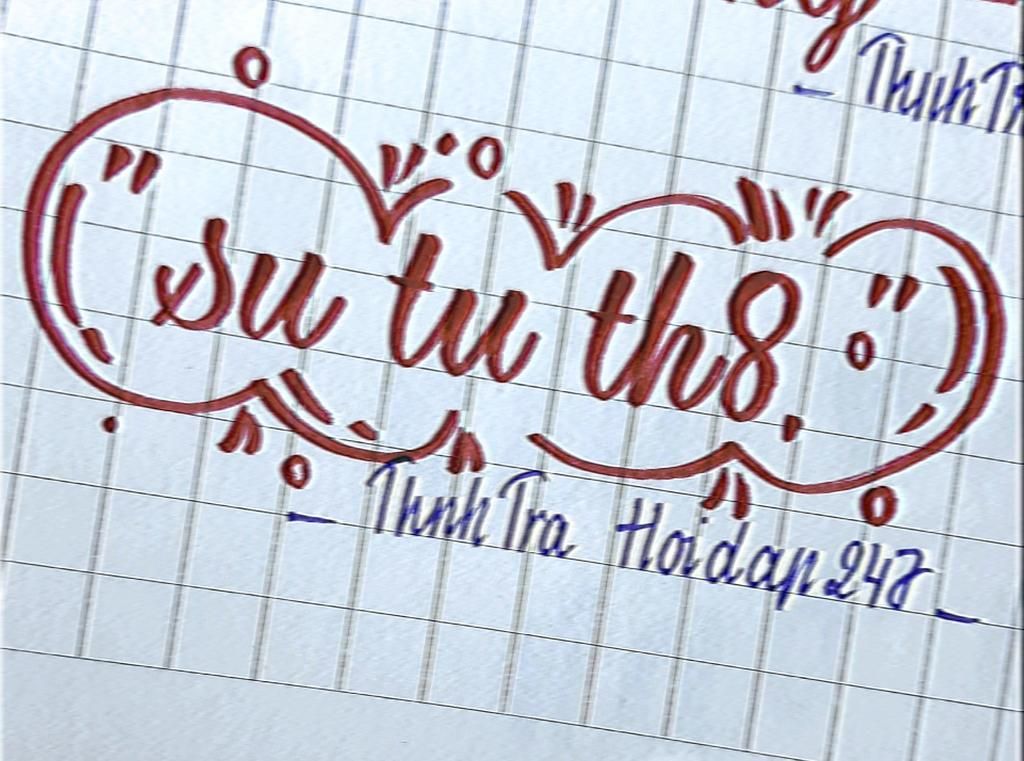 - Thnh Tr
" su tu th8. "
- Thnh Tra Hoidap247 -